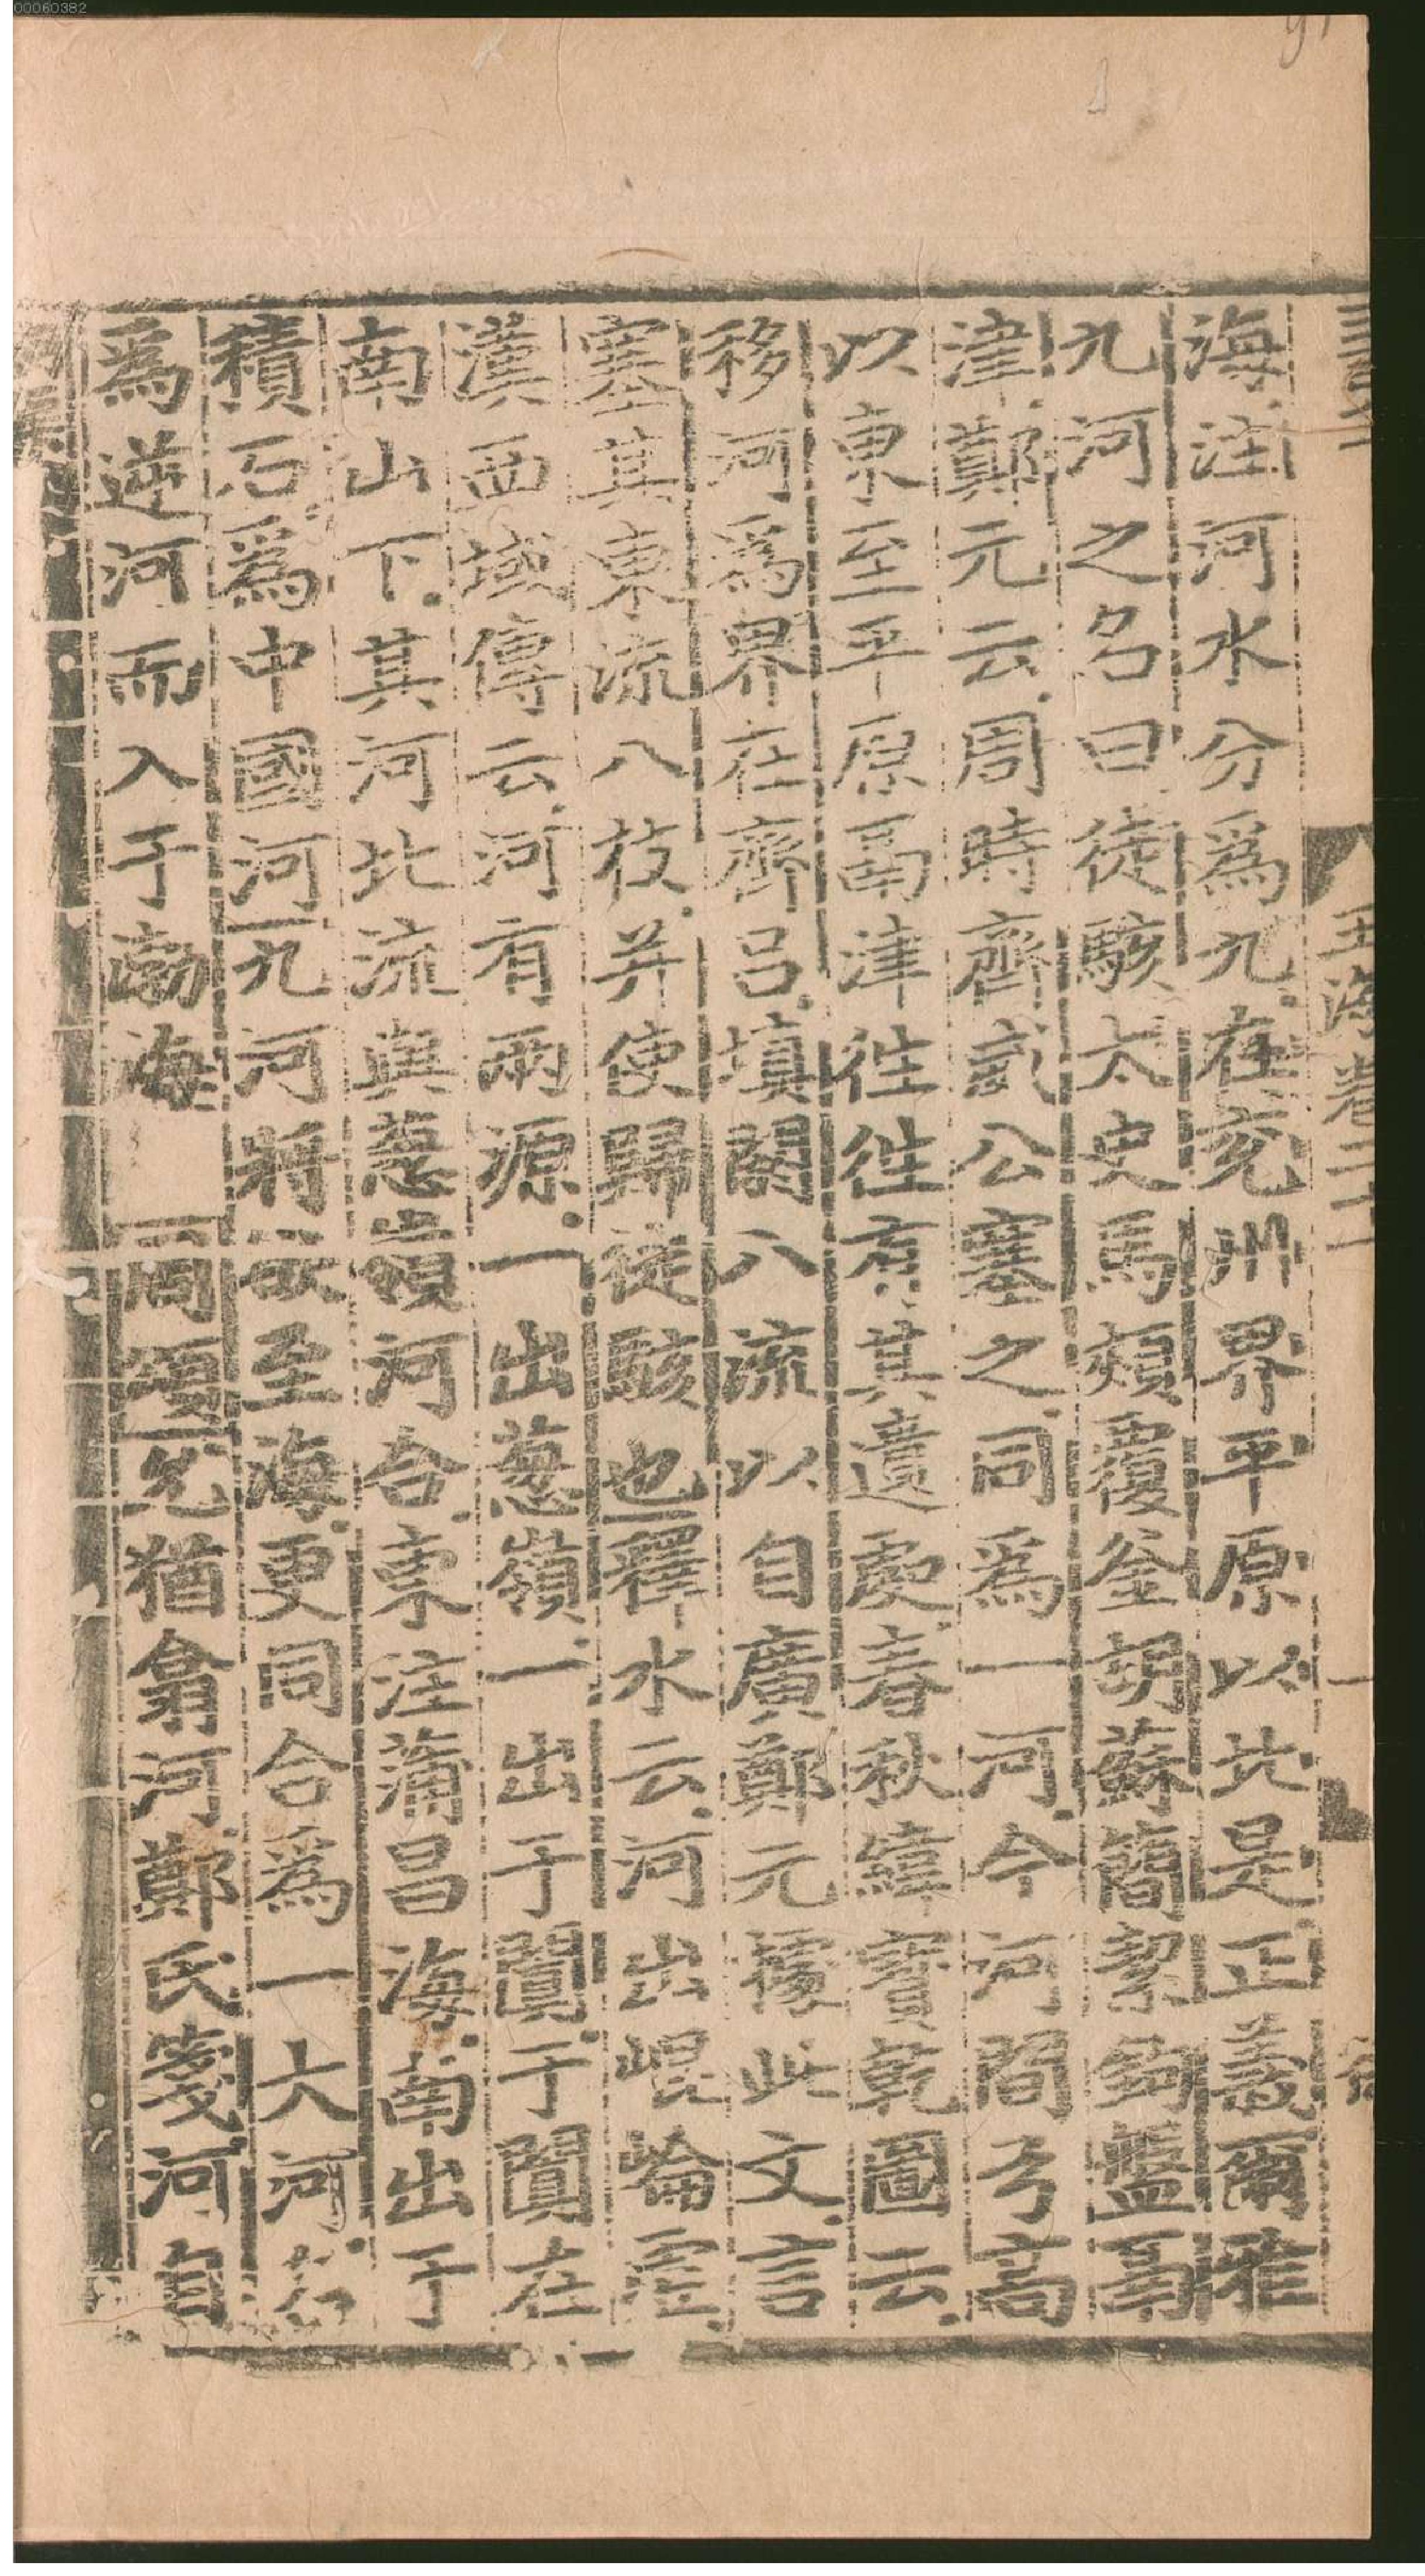 00060382
玉海卷二十一
海注河水分為九在兖州界平原以北是正義爾雅
九河之名曰徒駭太史馬頰覆釜胡蘇簡絜鉤盤鬲
津鄭元云周時齊威公塞之同為一河今河間弓高
以東至平原鬲津往往有其遺處春秋緯寶乾圖云
移河為界在齊呂填閼八流以自廣鄭元據此文言
塞其東流八枝并使歸徒駭也釋水云河出崐崙虛
漢西域傳云河有兩源一出葱嶺一出于闐于闐在
南山下其河北流與葱嶺河合東注蒲昌海南出于
積石為中國河九河將欲至海更同合為一大河名
為逆河而入于渤海 周頌允猶翕河鄭氏箋河自